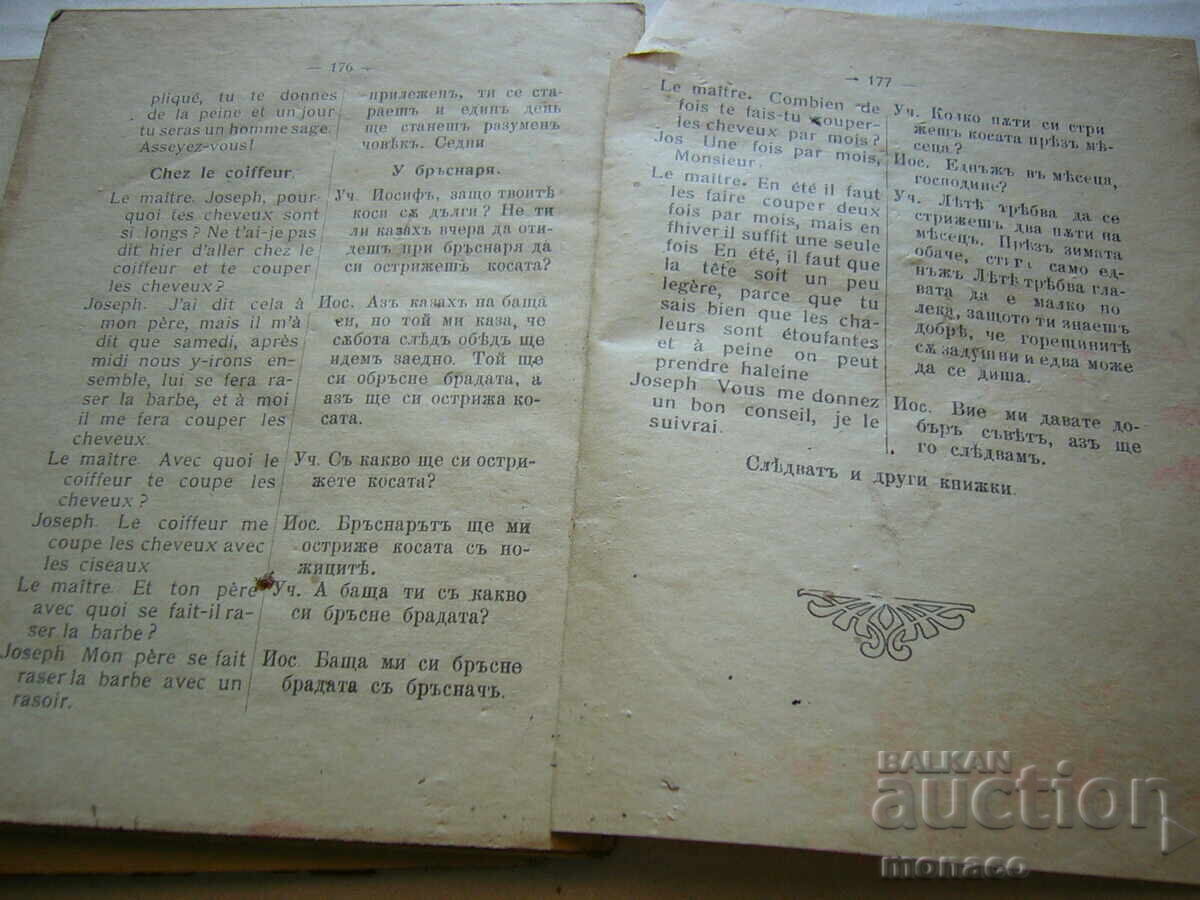 — 176 —
pliqué, tu te donnes
de la peine et un jour
tu seras un homme sage.
Asseyez-vous!
Chez le coiffeur.
Le maître. Joseph, pour-
quoi tes cheveux sont
si longs? Ne t'ai-je pas
dit hier d'aller chez le
coiffeur et te couper
les cheveux?
Joseph. J'ai dit cela à
mon père, mais il m'à
dit que samedi, après
midi nous y-irons en-
semble, lui se fera ra-
ser la barbe, et à moi
il me fera couper les
cheveux.
Le maître. Avec quoi le
coiffeur te coupe les
cheveux?
Joseph. Le coiffeur me
coupe les cheveux avec
les ciseaux
Le maître. Et ton père
avec quoi se fait-il ra-
ser la barbe?
Joseph Mon père se fait
raser la barbe avec un
rasoir.
прилеженъ, ти се ста-
раешъ и единъ день
ще станешъ разуменъ
човѣкъ. Седни
У бръснаря.
Уч. Иосифъ, защо твоитѣ
коси сѫ дълги? Не ти
ли казахъ вчера да оти-
дешъ при бръснаря да
си острижешъ косата?
Иос. Азъ казахъ на баща
си, но той ми каза, че
сѫбота слѣдъ обѣдъ ще
идемъ заедно. Той ще
си обръсне брадата, а
азъ ще си острижа ко-
сата.
Уч. Съ какво ще си остри-
жете косата?
Иос. Бръснарътъ ще ми
остриже косата съ но-
жицитѣ.
Уч. А баща ти съ какво
си бръсне брадата?
Иос. Баща ми си бръсне
брадата съ бръсначъ.
— 177 —
Le maître. Combien de
fois te fais-tu couper-
les cheveux par mois?
Jos Une fois par mois,
Monsieur.
Le maître. En été il faut
les faire couper deux
fois par mois, mais en
fhiver il suffit une seule
fois En été, il faut que
la tête soit un peu
legère, parce que tu
sais bien que les cha-
leurs sont étoufantes
et à peine on peut
prendre haleine
Joseph Vous me donnez
un bon conseil, je le
suivrai.
Уч. Колко пѫти си стри
жешъ косата прѣзъ мѣ-
сеца?
Иос. Еднъжъ въ мѣсеца,
господине?
Уч. Лѣтѣ трѣбва да се
стрижешъ два пѫти на
мѣсецъ. Прѣзъ зимата
обаче, само ед-
нъжъ Лѣтѣ трѣбва гла-
вата да е малко по
лека, защото ти знаешъ
добрѣ, че горещинитѣ
сѫ задушни и едва може
да се диша.
Иос. Вие ми давате до-
бъръ съвѣтъ, азъ ще
го слѣдвамъ.
Слѣдватъ и други книжки.
BALKAN
auction
monaco